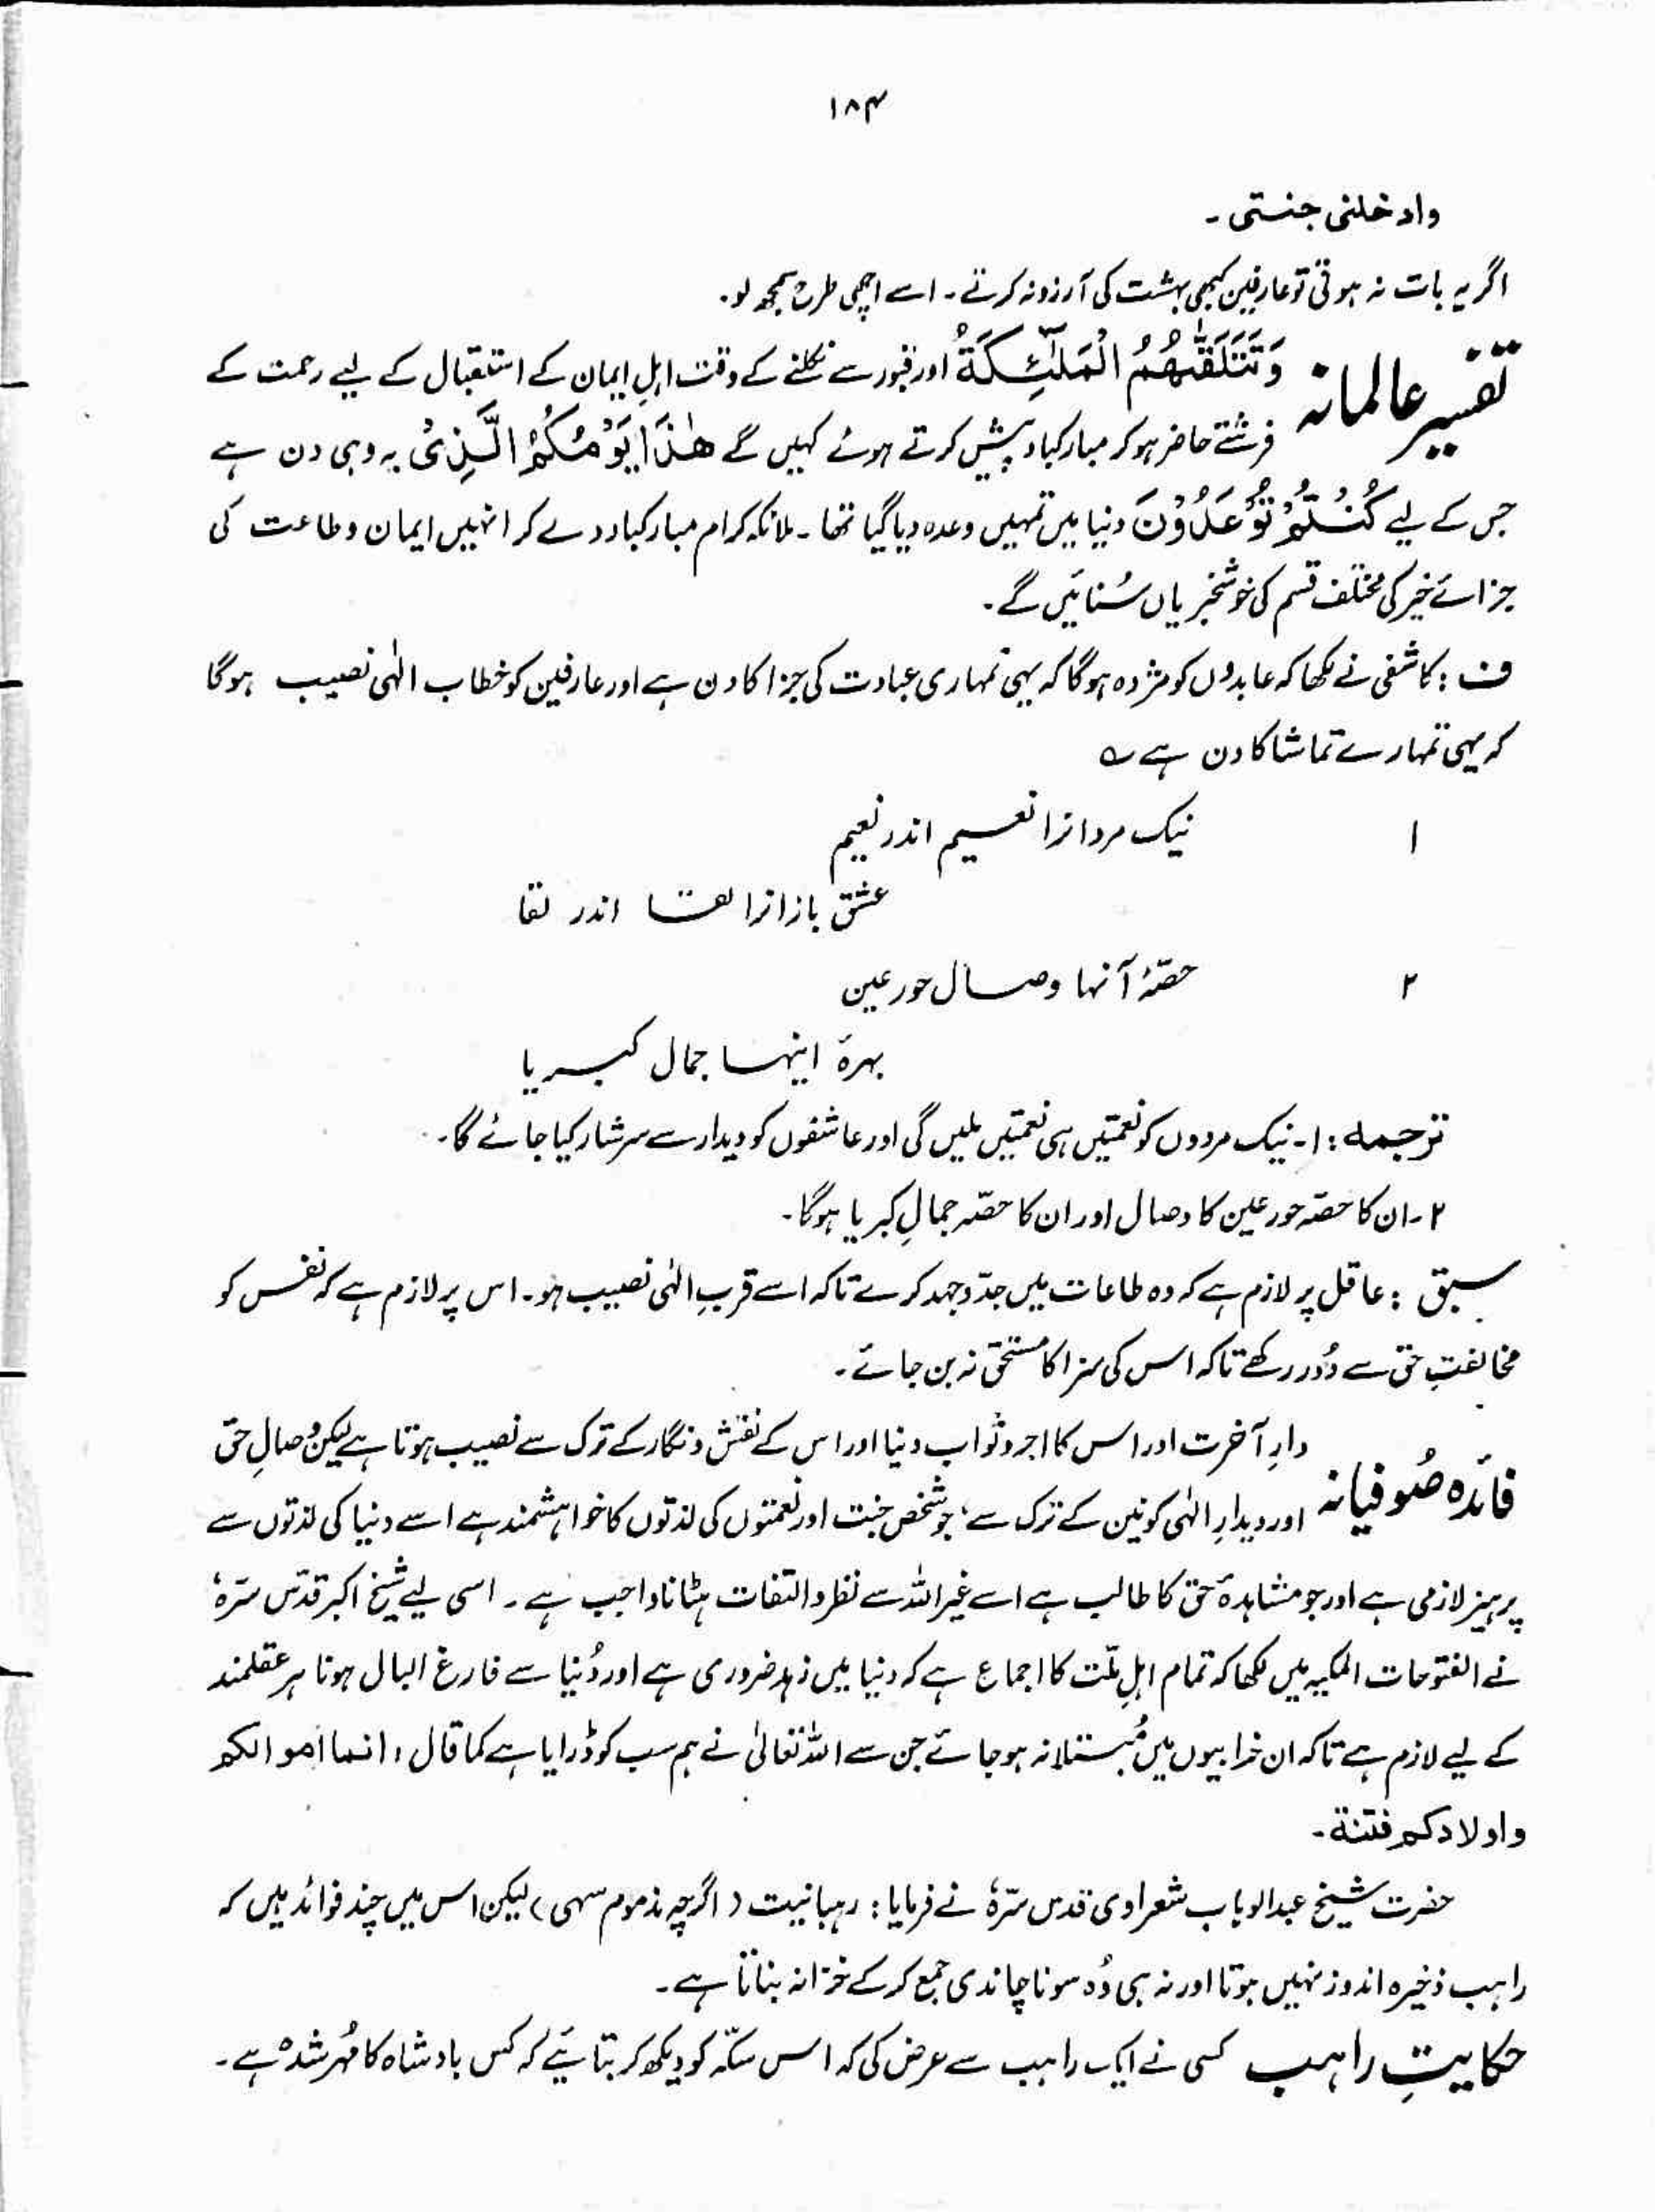 ۱۸۴
وادخلنی جنتی۔
اگر یہ بات نہ ہوتی تو عارفین کبھی بہشت کی آرزو نہ کرتے۔ اسے اچھی طرح سمجھ لو۔
تفسیر عالمانہ وَتَتَلَقّٰهُمُ الْمَلٰٓئِكَةُ اور قبور سے نکلنے کے وقت اہلِ ایمان کے استقبال کے لیے رحمت کے
فرشتے حاضر ہو کر مبارکباد پیش کرتے ہوئے کہیں گے هٰذَا يَوْمُكُمُ الَّذِیْ یہ وہی دن ہے
جس کے لیے كُنْتُمْ تُوْعَدُوْنَ دنیا میں تمہیں وعدہ دیا گیا تھا۔ ملائکہ کرام مبارکباد دے کر انہیں ایمان و طاعت کی
جزائے خیر کی مختلف قسم کی خوشخبریاں سُنائیں گے۔
ف : کاشفی نے لکھا کہ عابدوں کو مژدہ ہوگا کہ یہی تمہاری عبادت کی جزا کا دن ہے اور عارفین کو خطاب الٰہی نصیب ہوگا
کہ یہی تمہارے تماشا کا دن ہے ؎
۱ نیک مردانرا نعیم اندر نعیم
عشق بازانرا لقا اندر لقا
۲ حصّۂ آنہا وصال حور عین
بہرۂ اینہا جمال کبریا
ترجمہ : ۱۔ نیک مردوں کو نعمتیں ہی نعمتیں ملیں گی اور عاشقوں کو دیدار سے سرشار کیا جائے گا۔
۲۔ ان کا حصّہ حور عین کا وصال اور ان کا حصّہ جمالِ کبریا ہوگا۔
سبق : عاقل پر لازم ہے کہ وہ طاعات میں جدّوجہد کرے تاکہ اسے قربِ الٰہی نصیب ہو۔ اس پر لازم ہے کہ نفس کو
مخالفتِ حق سے دُور رکھے تاکہ اس کی سزا کا مستحق نہ بن جائے۔
فائدہ صُوفیانہ دارِ آخرت اور اس کا اجر و ثواب دنیا اور اس کے نقش و نگار کے ترک سے نصیب ہوتا ہے لیکن وصالِ حق
اور دیدارِ الٰہی کونین کے ترک سے، جو شخص جنت اور نعمتوں کی لذتوں کا خواہشمند ہے اسے دنیا کی لذتوں سے
پرہیز لازمی ہے اور جو مشاہدۂ حق کا طالب ہے اسے غیر اللہ سے نظر و التفات ہٹانا واجب ہے۔ اسی لیے شیخ اکبر قدّس سرّہٗ
نے الفتوحات المکیہ میں لکھا کہ تمام اہلِ ملّت کا اجماع ہے کہ دنیا میں زہد ضروری ہے اور دُنیا سے فارغ البال ہونا ہر عقلمند
کے لیے لازم ہے تاکہ ان خرابیوں میں مُبتلا نہ ہو جائے جن سے اللہ تعالیٰ نے ہم سب کو ڈرایا ہے کما قال، انما اموالکم
واولادکم فتنة۔
حضرت شیخ عبدالوہاب شعراوی قدس سرّہٗ نے فرمایا : رہبانیت (اگرچہ مذموم سہی) لیکن اس میں چند فوائد ہیں کہ
راہب ذخیرہ اندوز نہیں ہوتا اور نہ ہی وُہ سونا چاندی جمع کرکے خزانہ بناتا ہے۔
حکایتِ راہب کسی نے ایک راہب سے عرض کی کہ اس سکّہ کو دیکھ کر بتائیے کہ کس بادشاہ کا مُہر شدہ ہے۔